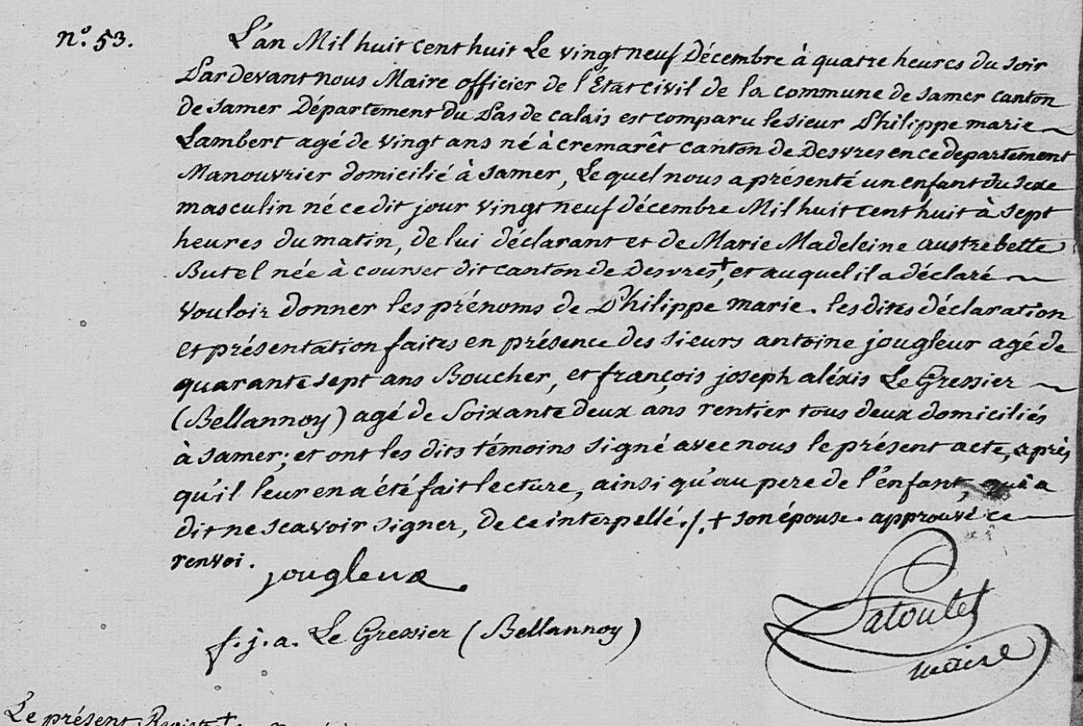 n.º 53.
L'an Mil huit cent huit Le vingt neuf Décembre à quatre heures du soir
Pardevant nous Maire officier de l'État civil de la commune de samer canton
de samer Département du Pas de calais est comparu le sieur Philippe marie
Lambert agé de vingt ans né à cremarêt canton de Desvres en ce departement
Manouvrier domicilié à samer, Le quel nous a présenté un enfant du sexe
masculin né ce dit jour vingt neuf décembre Mil huit cent huit à sept
heures du matin, de lui déclarant et de Marie Madeleine austrebette
Butel née à courset dit canton de Desvres +, et auquel il a déclaré
vouloir donner les prénoms de Philippe marie. les dites déclaration
et présentation faites en présence des sieurs antoine jougleux agé de
quarante sept ans Boucher, et françois joseph aléxis Le Gressier
(Bellannoy) agé de soixante deux ans rentier tous deux domiciliés
à samer; et ont les dits témoins signé avec nous le présent acte, après
qu'il leur en a été fait lecture, ainsi qu'au pere de l'enfant, qui a
dit ne scavoir signer, de ce interpellé ./. + son épouse. approuvé ce
renvoi.
jougleux
f. j. a. Le Gressier (Bellannoy)
Patoulet
maire
Le présent